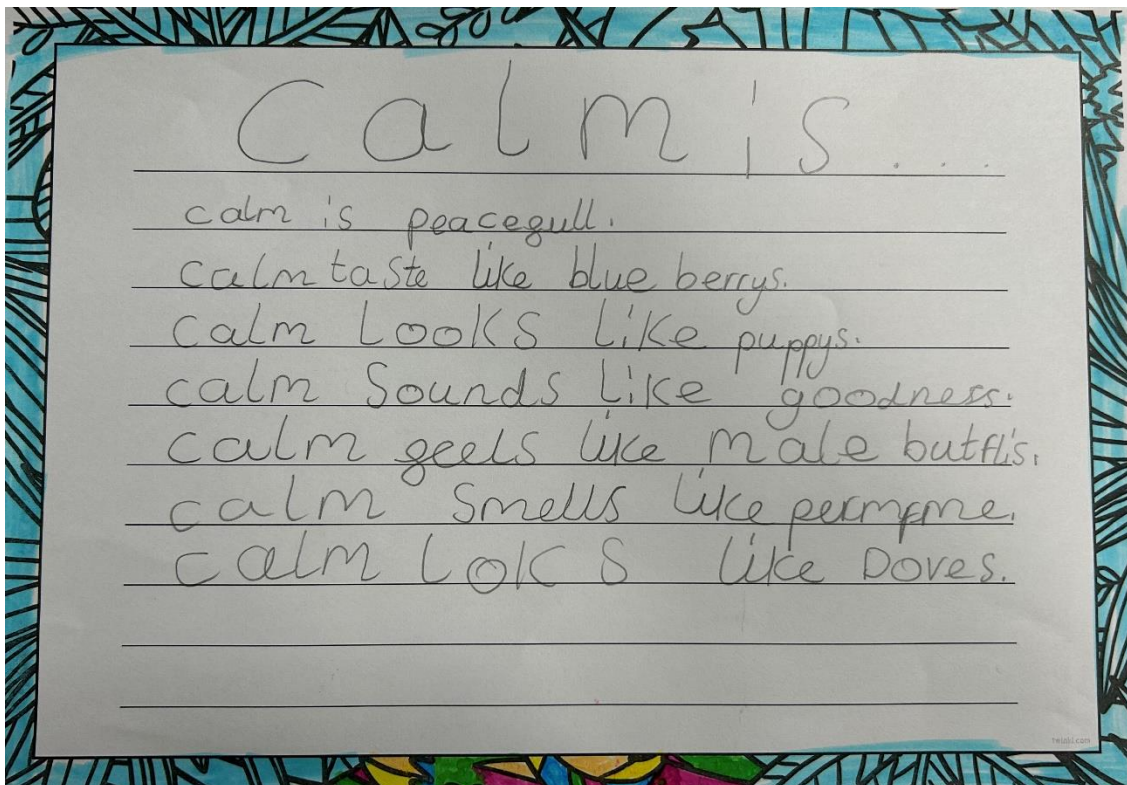 Calm is...
calm is peacegull.
calm taste like blue berrys.
calm Looks Like puppys.
calm Sounds Like goodness.
calm geels like male butflis.
calm smells like
calm LokS like Doves.